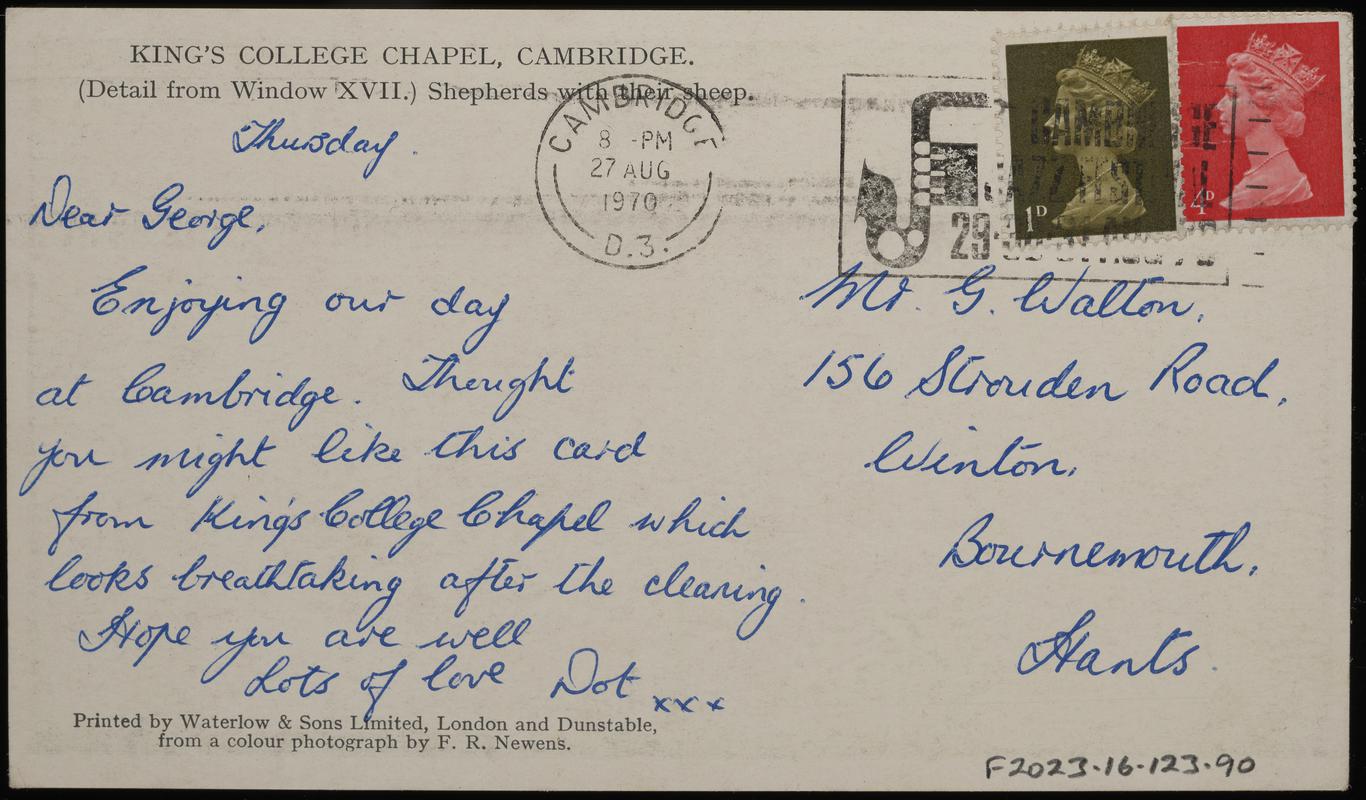 KING'S COLLEGE CHAPEL, CAMBRIDGE.
(Detail from Window XVII.) Shepherds with their sheep.
Thursday.
Dear George,
Enjoying our day
at Cambridge. Thought
you might like this card
from King's College Chapel which
looks breathtaking after the cleaning.
Hope you are well
Lots of love Dot xxx
Printed by Waterlow & Sons Limited, London and Dunstable,
from a colour photograph by F. R. Newens.
CAMBRIDGE
8 -PM
27 AUG
1970
D.3.
CAMBRIDGE
JAZZ FEST
29-
1D
4D
Mr. G. Walton,
156 Strouden Road,
Winton,
Bournemouth,
Hants.
F2023-16-123-90